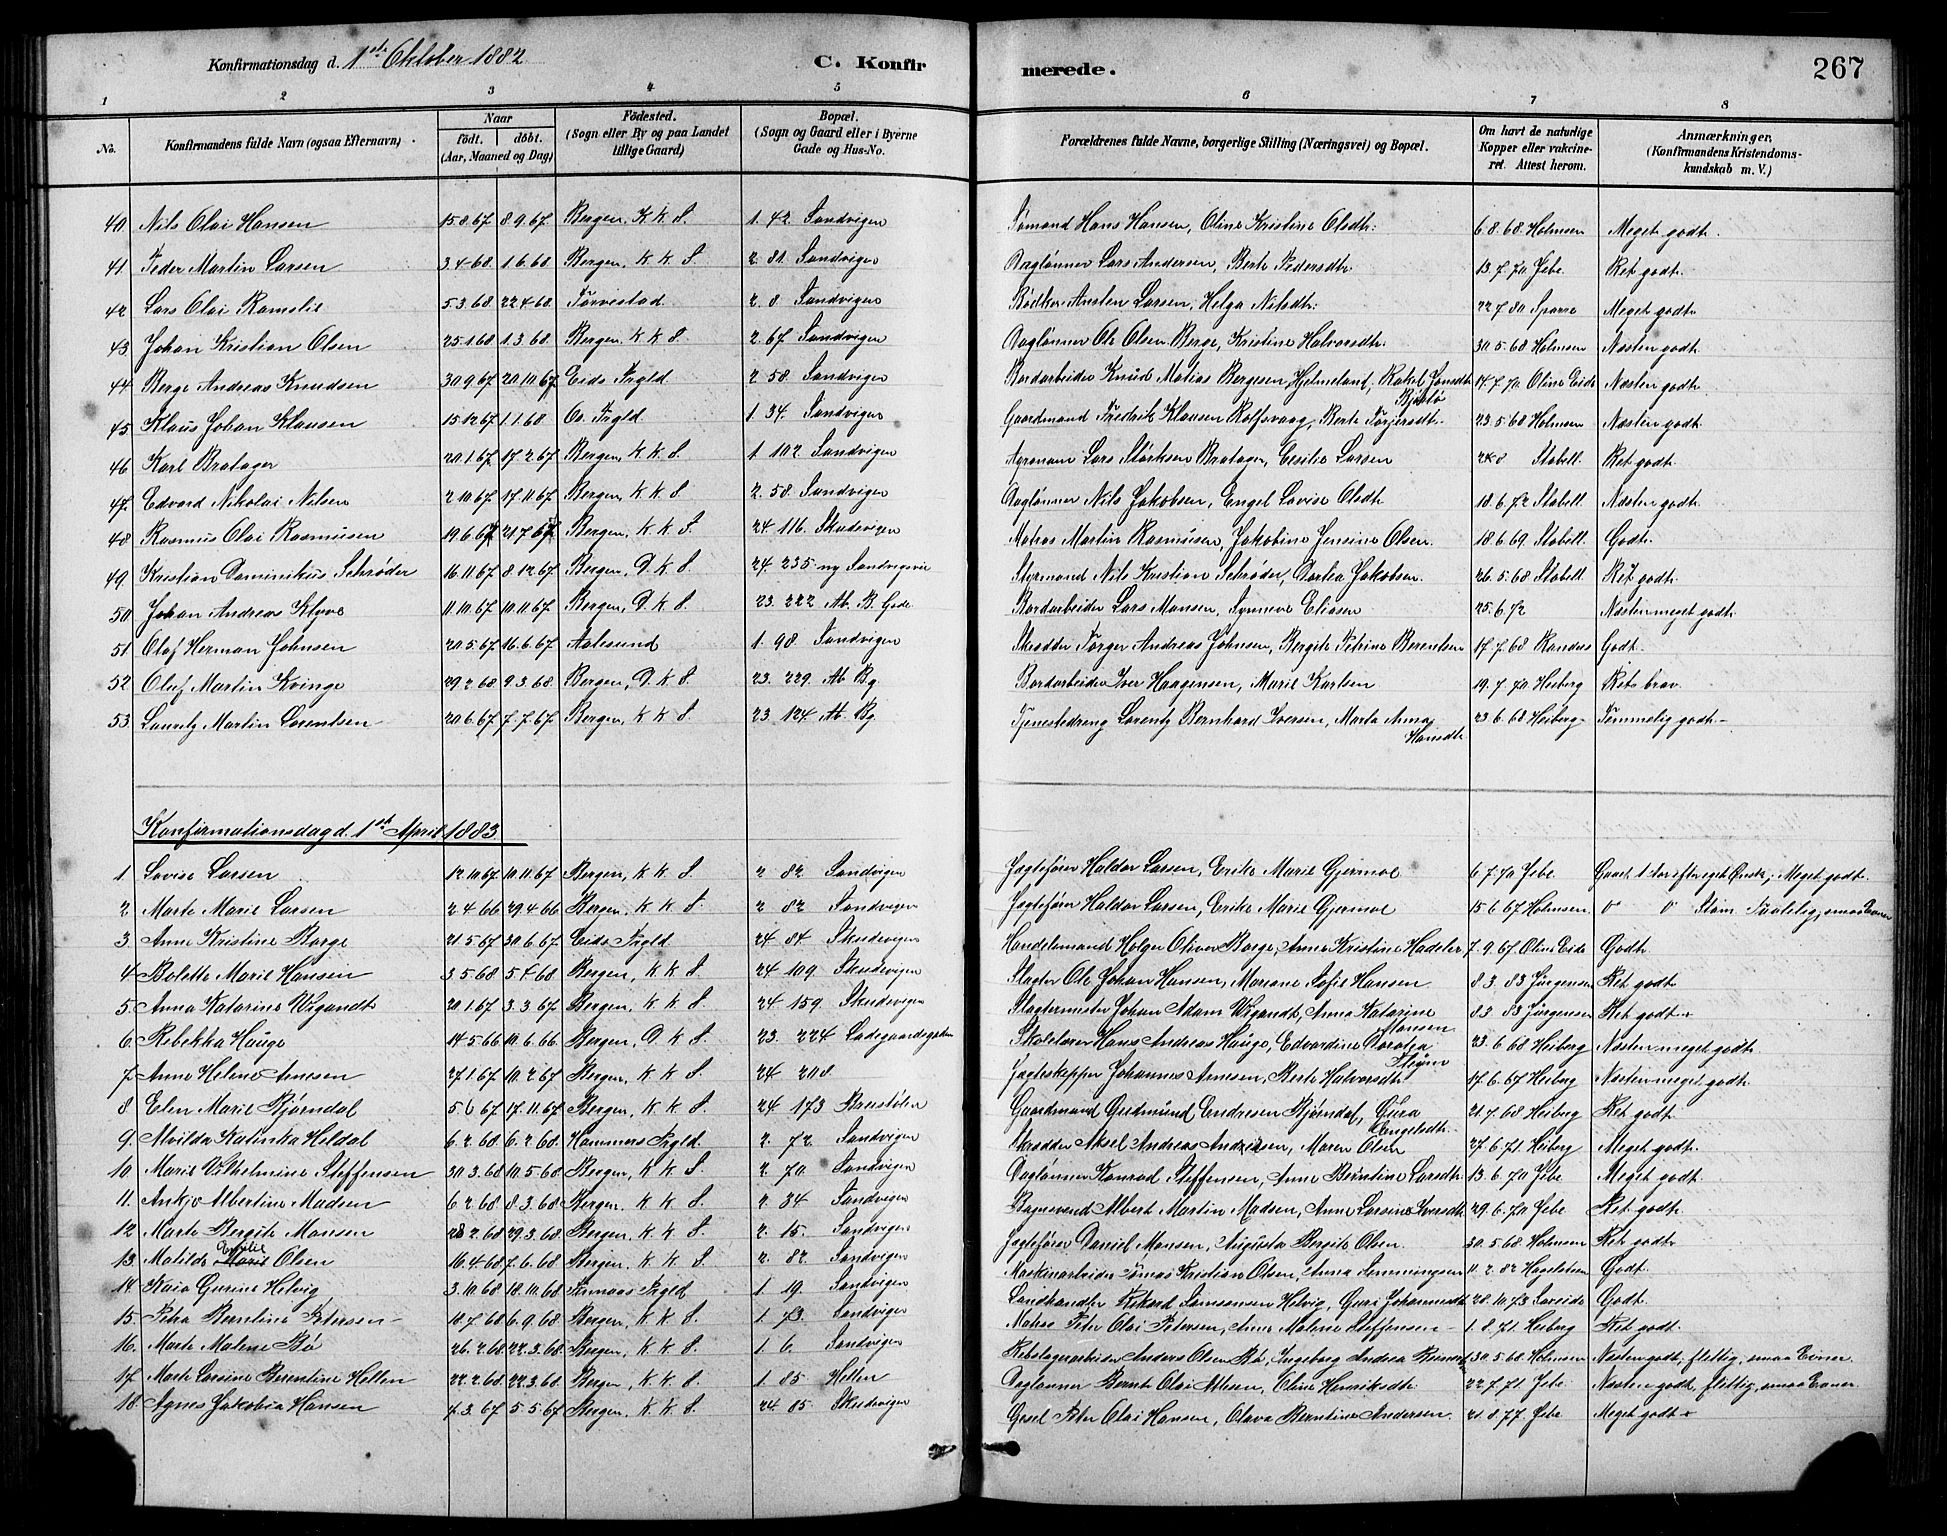 Konfirmationsdag d. 1ste Oktober 1882
C. Konfir
merede.
267
1 2 3 4 5 6 7 8
No.
Konfirmandens fulde Navn (ogsaa Efternavn)
Naar
födt. döbt.
(Aar, Maaned og Dag)
Födested.
(Sogn eller By og paa Landet
tillige Gaard)
Bopæl.
(Sogn og Gaard eller i Byerne
Gade og Hus-No.
Forældrenes fulde Navne, borgerlige Stilling (Næringsvei) og Bopæl.
Om havt de naturlige
Kopper eller vakcine-
ret. Attest herom.
Anmærkninger,
(Konfirmandens Kristendoms-
kundskab m. V.)
40 Nils Olai Hansen 15 8 67 8 9 67 Bergen, K K S 1. 42 Sandvigen Sömand Hans Hansen, Oline Kristine Olsdtr: 6. 8. 68 Holmsen Meget godt.
41 Peder Martin Larsen 3 4 68 1. 6. 68 Bergen, K. K. S 2. 81. Sandvigen Daglønner Lars Andersen, Berte Pedersdtr. 13. 7. 70 Jebe Ret godt.
42 Lars Olai Ramslie 5 3. 68 22 4 68 Torvestad 2. 8 Sandvigen Bödker Austen Larsen, Helga Nilsdtr: 22 7. 80 Sparre Meget godt.
43 Johan Kristian Olsen 25 1 68 1. 3. 68 Bergen, K K S. 2. 67 Sandvigen Daglønner Ole Olsen Berge, Kristine Halvorsdtr. 30. 5. 68 Holmsen Næsten godt.
44 Berge Andreas Knudsen 30 9. 67 20 10 67 Eids Prgld 2 58 Sandvigen Bordarbeider Knud Matias Bergesen, Hjelmeland, Rakel Jonsdtr 14. 7. 70 Oline Eide Næsten godt.
45 Klaus Johan Klausen 15 12 67 1. 1. 68 Prgld 1. 34. Sandvigen Gaardmand Fredrik Klausen Rolfsvaag, Berte Torjersdtr. 23. 5. 68 Holmsen Næsten godt.
46 Karl Bratager 20 1 67 17 2 67 Bergen, K. K. S 1. 102 Sandvigen Agronom Lars Størksen Bratager, Cesilie Larsen Stabell. Ret godt.
47. Edvard Nikolai Nilsen 2 10 67 17 11 67 Bergen, K K. S 2. 58 Sandvigen Daglønner Nils Jakobsen, Engel Lovise Olsdtr. 18. 6. 72 Stabell. Næsten godt.
48 Rasmus Olai Rasmusen 19 6 67 21 7 67 Bergen, K K S 24 116. Skudevigen Matros Martin Rasmusen, Jakobine Jensine Olsen. 18. 6. 69. Stabell. Godt.
49 Kristian Dominikus Schrøder 16. 11. 67 8. 12. 67 Bergen, D. K S 24. 235 ny Sandvigsvei Styrmand Nils Kristian Schrøder, Dortea Jakobsen. 26. 5. 68 Stabell. Ret godt.
50 Johan Andreas Klyve 11 10. 67 10. 11. 67 Bergen, D. K S. 23. 222 Ab. B. Gade Bordarbeider Lars Monsen, Synneve Eliasen 25. 6. 72 Næsten meget godt.
51 Olaf Herman Johnsen 20 5. 67 16. 6. 67 Aalesund 1. 98 Sandvigen Skrædder Torger Andreas Johnsen, Bergite Petrine Berentsen 17. 7. 68 Randers Godt.
52 Oluf Martin Kvinge 29 2 68 9 3. 68 Bergen, D. K S. 23. 229 Ab Bg Bordarbeider Iver Haagensen, Marie Karlsen 19. 7. 70 Heiberg Ret brav.
53 Lauritz Martin Lorentsen 20 6. 67 7. 7. 67 Bergen, K K S. 23. 124 Ab. Bg Tjenestedreng Lorentz Bernhard Iversen, Marta Anna 23. 6. 68 Heiberg. Temmelig godt.
Hansdtr
Konfirmationsdag d. 1ste April 1883
1 Lovise Larsen 12 10 67 10. 11. 67 Bergen, K K S 2 82 Sandvigen Jagtefører Haldor Larsen, Erika Marie Gjermoe 6 7. 70 Jebe Gaaet 1 Aar efter eget Ønske, Meget godt.
2 Marte Marie Larsen 2 4 66 29. 4 66 Bergen, K K S. 2 82 Sandvigen Jagtefører Haldor Larsen, Erika Marie Gjermoe 15 6. 67 Holmsen Taalelig, smaa Evner
3 Anne Kristine Borge 21. 5. 67 30. 6. 67 Eids Prgld 24 84 Skudevigen Handelsmand Holger Oliver Borge, Anne Kristine Hadeler 7. 9. 67 Oline Eide Godt
4 Bolette Marie Hansen 3. 5. 68 5. 7. 68 Bergen, K K S 24 109. Skudevigen Slagter Ole Johan Hansen, Mariane Sofie Hansen 8 3. 83 Jürgensen Ret godt.
5 Anna Katarine Wigandt 20 1. 67 3. 3. 67 Bergen, K K S 24 159 Skudevigen Slagtermester Johan Adam Wigandt, Anna Katarine 8 3. 83 Jürgensen Ret godt.
Hansen
6. Rebekka Hauge 14. 5. 66 10. 6. 66 Bergen, D. K S 23. 224 Ladegaardsgaden Skolelærer Hans Andreas Hauge, Edvardine Dorotea 23. 6 68 Heiberg Næsten meget godt.
7 Anne Helene Arnesen 27 1. 67 10. 2 67 Bergen, K K S. 24 208 Jagteskipper Johannes Arnesen, Berte Halvorsdtr 17. 6. 67 Heiberg Næsten meget godt.
8 Elen Marie Bjørndal 5. 6 67 17. 11. 67 Bergen, K K S. 24 173 Breistølen Gaardmand Gudmund Endresen Bjørndal, Gura 21. 7. 68 Heiberg Ret godt.
Engelsdtr.
9. Alvilda Katinka Heldal 6. 2. 68 6. 2 68 Hammers Prgld. 2. 72 Sandvigen Skrædder Aksel Andreas Andersen, Maren Olsen 27. 6. 71. Heiberg Meget godt.
10. Marie Wilhelmine Steffensen 30. 3. 68 10. 5 68 Bergen, K K S. 2. 70 Sandvigen Daglønner Konrad Steffensen, Anne Berntine Larsdtr. 13. 6. 70 Jebe Meget godt.
11. Ankjø Albertine Madsen 6 2 68 8. 3. 68 Bergen, K K S. 2. 34 Sandvigen Bagersvend Albert Martin Madsen, Anne Larsine Iversdtr 29. 6. 70 Jebe Ret godt.
12 Marte Bergite Monsen 28 2. 68 29. 3. 68 Bergen, K. K. S. 2. 15. Sandvigen Jagtefører Daniel Monsen, Augusta Bergite Olsen. 30. 5. 68 Holmsen Ret godt.
Emilie
13. Matilde Marie Olsen 16. 4. 68 7. 6. 68 Bergen, K K S. 2. 82 Sandvigen Maskinarbeider Tomas Kristian Olsen, Anna Femmingsen 11. 2. 82 Godt.
14. Kaia Gurine Helvig 3. 10 68 18. 10. 68 Prgld 1 19. Sandvigen Landhandler Rikard Samsonsen Helvig, Guri Johannesdtr 28. 10. 73 Godt.
15. Petra Berntine Petersen 10. 7 68 6. 9. 68 Bergen, K K S 1 73. Sandvigen Matros Peter Olai Petersen, Anne Malene Steffensen 1. 8. 71. Heiberg Ret godt.
16. Marte Malene Bö 26. 2. 68 22. 3. 68 Bergen, K K S 1 6 Sandvigen Rebslagerarbeider Anders Olsen Bö, Ingeborg Andrea 30. 5. 68 Holmsen Næsten godt, flittig, smaa Evner.
17. Marte Larsine Berentine Hellen 22. 2. 68 22. 3. 68 Bergen, K K S 1 85 Hellen Daglønner Bernt Olai Olsen, Oline Henriksdtr. 22 7. 71. Jebe. Næsten godt, flittig, smaa Evner.
18. Agnes Jakobia Hansen 7. 3. 67 5. 5. 67 Bergen, K. K S 24 85. Skudevigen Gesel Peter Olai Hansen, Olava Berntine Andersen. 21. 8. 77 Jebe Meget godt